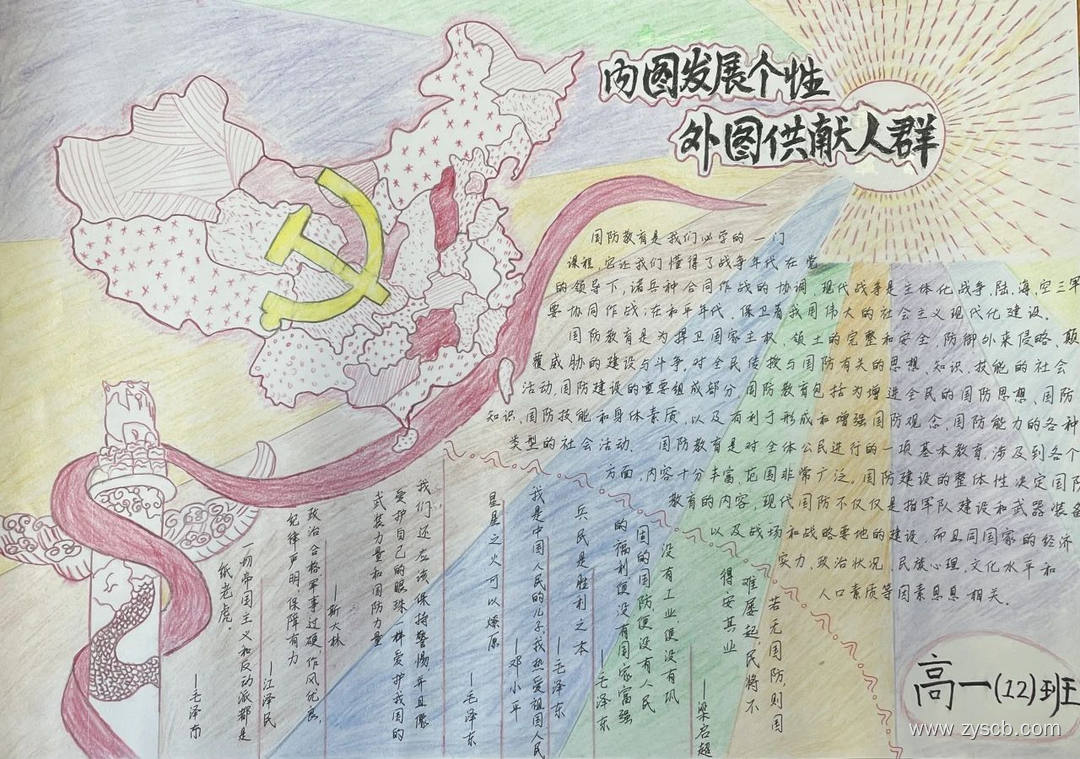 内图发展个性
外图供献人群
国防教育是我们必学的一门
课程,它让我们懂得了战争年代在党
的领导下,诸兵种合同作战的协调,现代战争是主体化战争,陆、海、空三军
要协同作战;在和平年代,保卫着我国伟大的社会主义现代化建设。
国防教育是为捍卫国家主权,领土的完整和安全,防御外来侵略,颠
覆威胁的建设与斗争,对全民传授与国防有关的思想、知识、技能的社会
活动,国防建设的重要组成部分,国防教育包括为增进全民的国防思想、国防
知识、国防技能和身体素质,以及有利于形成和增强国防观念,国防能力的各种
类型的社会活动。国防教育是对全体公民进行的一项基本教育,涉及到各个
方面,内容十分丰富,范围非常广泛,国防建设的整体性决定国防
教育的内容,现代国防不仅仅是指军队建设和武器装备
以及战场和战略要地的建设,而且同国家的经济
实力,政治状况,民族心理,文化水平和
人口素质等因素息息相关。
若无国防,则国
难屡起,民将不
得安其业
——梁启超
没有工业便没有巩
固的国防便没有人民
的福利便没有国家富强
——毛泽东
兵民是胜利之本
——毛泽东
我是中国人民的儿子,我热爱祖国人民
——邓小平
星星之火可以燎原
——毛泽东
我们还应该保持警惕,并且像
爱护自己的眼珠一样爱护我国的
武装力量和国防力量
——斯大林
政治合格军事过硬作风优良,
纪律严明保障有力
——江泽民
一切帝国主义和反动派都是
纸老虎。
——毛泽东
高一(12)班
www.zyscb.com